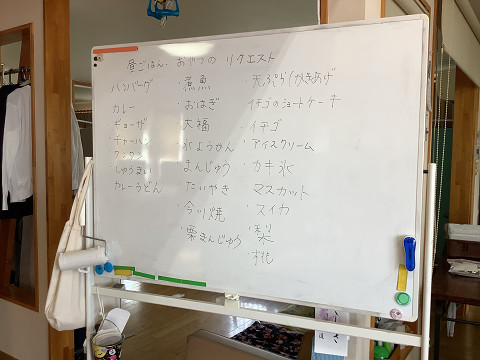 昼ごはん・おやつの リクエスト
ハンバーグ
カレー
ギョーザ
チャーハン
ワンタン
しゅうまい
カレーうどん
・煮魚
・おはぎ
大福
・水ようかん
まんじゅう
・たいやき
・今川焼
・栗まんじゅう
・天ぷら(かきあげ
イチゴのショートケーキ
・イチゴ
・アイスクリーム
・カキ氷
マスカット
・スイカ
・梨
・桃